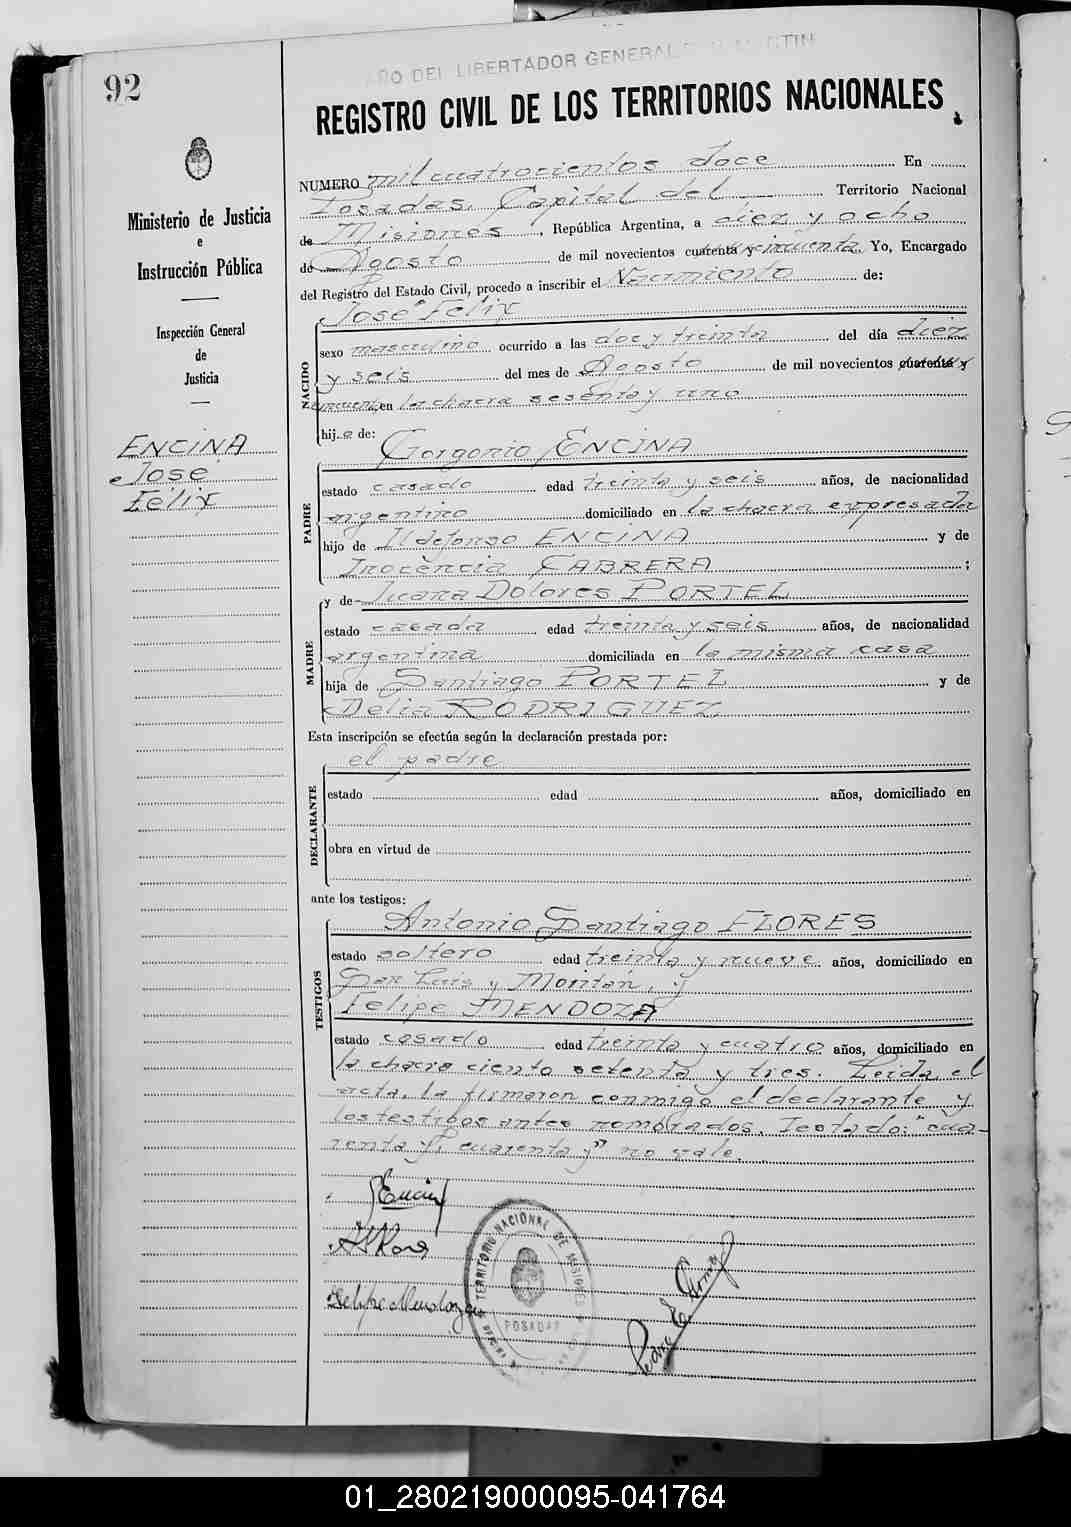 92
AÑO DEL LIBERTADOR GENERAL SAN MARTIN
REGISTRO CIVIL DE LOS TERRITORIOS NACIONALES
Ministerio de Justicia
e
Instrucción Pública
Inspección General
de
Justicia
ENCINA
José
Félix
NUMERO mil cuatrocientos doce En
Posadas, Capital del Territorio Nacional
de Misiones, República Argentina, a diez y ocho
de Agosto de mil novecientos cuarenta y cincuenta. Yo, Encargado
del Registro del Estado Civil, procedo a inscribir el Nacimiento de:
NACIDO
José Félix
sexo masculino ocurrido a las doce y treinta del día diez
y seis del mes de Agosto de mil novecientos cuarenta y
cincuenta en la chacra sesenta y uno
hijo de:
Gorgonio ENCINA
PADRE
estado casado edad treinta y seis años, de nacionalidad
argentino domiciliado en la chacra expresada
hijo de Ildefonso ENCINA y de
Inocencia CABRERA ;
y de Juana Dolores PORTEL
MADRE
estado casada edad treinta y seis años, de nacionalidad
argentina domiciliada en la misma casa
hija de Santiago PORTEL y de
Delia RODRIGUEZ.
Esta inscripción se efectúa según la declaración prestada por:
el padre
DECLARANTE
estado edad años, domiciliado en
obra en virtud de
ante los testigos:
Antonio Santiago FLORES
TESTIGOS
estado soltero edad treinta y nueve años, domiciliado en
San Luis y Moritán, y
Felipe MENDOZA
estado casado edad treinta y cuatro años, domiciliado en
la chacra ciento setenta y tres. Leida el
acta, la firmaron conmigo el declarante y
los testigos antes nombrados. Testado: "cua-
renta y, cuarenta y" no vale.
GEncina
Felipe Mendoza
TERRITORIO NACIONAL DE MISIONES
POSADAS
Pedro E.
01_280219000095-041764